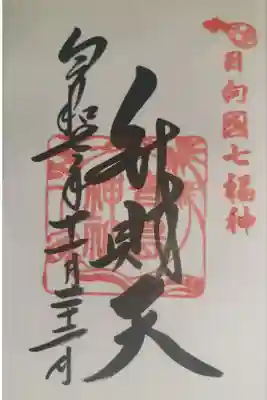 日向國七福神
弁財天
令和七年十一月二十二日